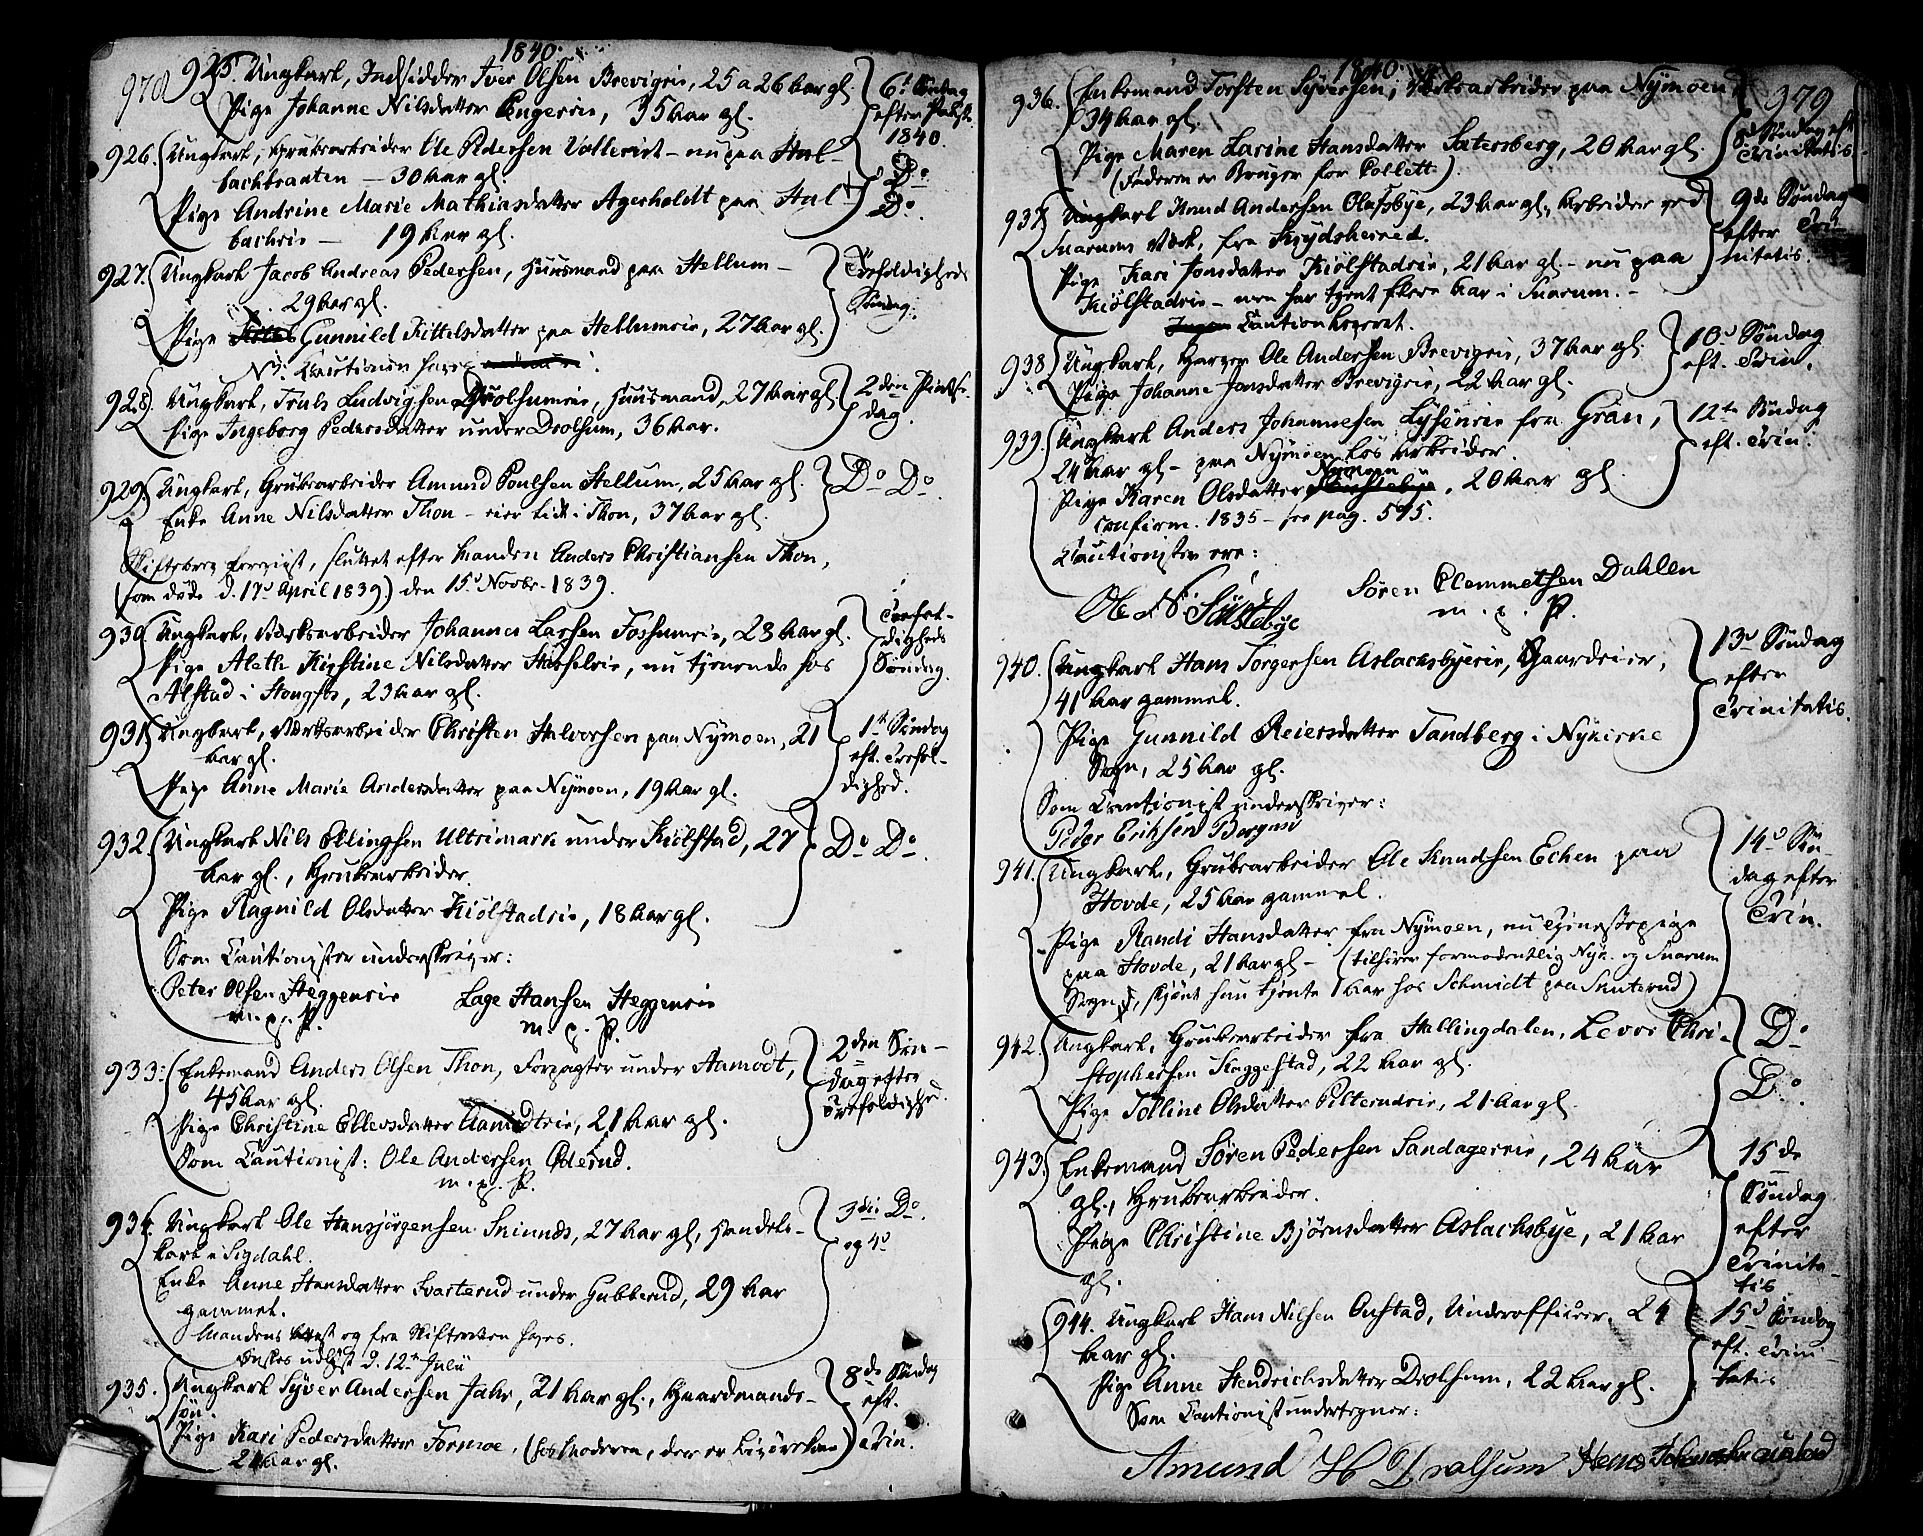 1840.
978
925. Ungkarl, Indsidder Iver Olsen Brevigeie, 25 a 26 Aar gl.
Pige Johanne Nilsdatter Engerie, 35 Aar gl.
6te Søndag
efter Paaske
1840.
926. Ungkarl, Grubearbeider Ole Pedersen - nu paa Hal-
backbraaten - 30 Aar gl.
Pige Andrine Marie Mathiasdatter Agerholdt paa Hal-
backeie - 19 Aar gl.
Do
Do.
927. Ungkarl Jacob Andreas Pedersen, Huusmand paa Hellum -
29 Aar gl.
Pige Gunnild Kittelsdatter paa Hellumeie, 27 Aar gl.
NB. Cautionen haves
Trefoldigheds
Søndag.
928. Ungkarl, Truls Ludvigsen Drolsumeie, Huusmand, 27 Aar gl.
Pige Ingeborg Pedersdatter under Drolsum, 36 Aar.
2den Pintse-
dag.
929. Ungkarl, Grubearbeider Amund Poulsen Hellum, 25 Aar gl.
Enke Anne Nilsdatter Thon - eier lidt i Thon, 37 Aar gl.
Do Do.
Skiftebrev foreviist, sluttet efter Manden Anders Christiansen Thon,
(som døde d. 17de April 1839) den 15de Novbr. 1839.
930. Ungkarl, Værksarbeider Johannes Larsen Fossumeie, 28 Aar gl.
Pige Aleth Kirstine Nilsdatter, nu tjenende hos
Alstad i Hougfos, 23 Aar gl.
Trefol-
digheds
Søndag.
931. Ungkarl, Værksarbeider Christen Halvorsen paa Nymoen, 21
Aar gl.
Pige Anne Marie Andersdatter paa Nymoen, 19 Aar gl.
1ste Søndag
eft. Trefol-
dighed.
932. Ungkarl Nils Ellingsen Ultrimark under Kiølstad, 27
Aar gl., Grubearbeider.
Pige Ragnild Olsdatter Kiølstadeie, 18 Aar gl.
Do Do.
Som Cautionister underskriver:
Peter Olsen Heggeneie Lage Hansen Heggeneie
m. p. P. m. p. P.
933. Enkemand Anders Olsen Thon, Forpagter under Aamodt,
45 Aar gl.
Pige Christine Ellevsdatter Aamodteie, 21 Aar gl.
Som Cautionist: Ole Andersen Øderud.
m. p. P.
2den Søn-
dag efter
Trefoldighed.
934. Ungkarl Ole Hansjørgensen, 27 Aar gl, Handels-
karl i Sigdahl.
Enke Anne Hansdatter Svarterud under Gubberud, 29 Aar
gammel.
Mandens Attest og fra Skifteretten haves.
Ønskes udlyst d. 12te Julii
3die Do.
og 4de
935. Ungkarl Syver Andersen Jahr, 21 Aar gl., Gaardmands-
søn.
Pige Kari Pedersdatter Formoe, (hos Moderen, der er)
21 Aar gl.
8de Søndag
eft.
Trin.
1840.
379
936. Enkemand Torsten Syversen, Værksarbeider paa Nymoen,
34 Aar gl.
Pige Maren Larine Hansdatter Sætersberg, 20 Aar gl.
(Faderen er Bruger for Collett).
Søndag eft.
Trinitatis.
937. Ungkarl Knud Andersen Olafsbye, 23 Aar gl., Arbeider ved
Snarums Værk, fra Krydsherred.
Pige Kari Jonsdatter Kiølstadeie, 21 Aar gl - nu paa
Kiølstadeie - men har tjent flere Aar i Snarum. -
Ingen Caution
9de Søndag
efter Tri-
nitatis.
938. Ungkarl, Ole Andersen Brevigeie, 37 Aar gl.
Pige Johanne Jonsdatter Brevigeie, 22 Aar gl.
10de Søndag
eft. Trin.
939. Ungkarl Anders Johannesen Lyseneie fra Gran,
24 Aar gl - paa Nymoen løs Arbeider.
Nymoen
Pige Karen Olsdatter, 20 Aar gl.
confirm. 1835 - see pag. 575.
Cautionister ere:
12te Søndag
eft. Trin.
Ole N. Süstebye Søren Clemmetsen Dahlen
m. p. P.
940. Ungkarl Hans Torgersen Aslachsbyeeie, Gaardeier,
41 Aar gammel.
Pige Gunnild Reiersdatter Tandberg i Nykirke
Sogn, 25 Aar gl.
Som Cautionist underskriver:
Peder Eriksen Bergan
13de Søndag
efter
Trinitatis.
941. Ungkarl, Grubearbeider Ole Knudsen Echen paa
Hovde, 25 Aar gammel.
Pige Randi Hansdatter fra Nymoen, nu Tjenestepige
paa Hovde, 21 Aar gl - (tilhører formodentlig Nyk. og Snarum
Sogn, skjønt hun tjente 1 Aar hos Schmidt paa Skuterud)
14de Søn-
dag efter
Trin.
942. Ungkarl, Grubearbeider fra Hallingdalen, Levor Chri-
stophersen Kaggestad, 22 Aar gl.
Pige Tolline Olsdatter, 21 Aar gl.
Do
Do.
943. Enkemand Søren Pedersen Sandagereie, 24 Aar
gl., Grubearbeider.
Pige Christine Bjørnsdatter Aslachsbye, 21 Aar
gl.
15de
Søndag
efter
Trinita-
tis
944. Ungkarl Hans Nilsen Onstad, Underofficeer, 24
Aar gl.
Pige Anne Hendrichsdatter Drolsum, 22 Aar gl.
Som Cautionist undertegner:
15de Søndag
eft. Trini-
tatis
Amund H Drolsum